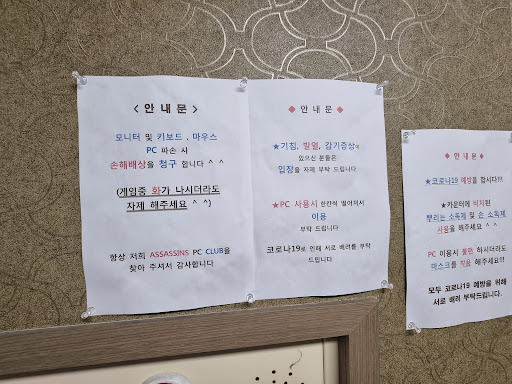 < 안 내 문 >
모니터 및 키보드 , 마우스
PC 파손 시
손해배상을 청구 합니다 ^ ^
(게임중 화가 나시더라도
자제 해주세요 ^ ^)
항상 저희 ASSASSINS PC CLUB을
찾아 주셔서 감사합니다
◆ 안 내 문 ◆
★기침, 발열, 감기증상이
있으신 분들은
입장을 자제 부탁 드립니다
★PC 사용시 한칸씩 떨어져서
이용
부탁 드립니다
코로나19로 인해 서로 배려를 부탁
드립니다
♦ 안 내 문 ♦
★코로나19 예방을 합시다!!!
★카운터에 비치된
뿌리는 소독제 및 손 소독제
사용을 해주세요^^
PC 이용시 불편 하시더라도
마스크를 착용 해주세요!!!
모두 코로나19 예방을 위해
서로 배려 부탁드립니다.